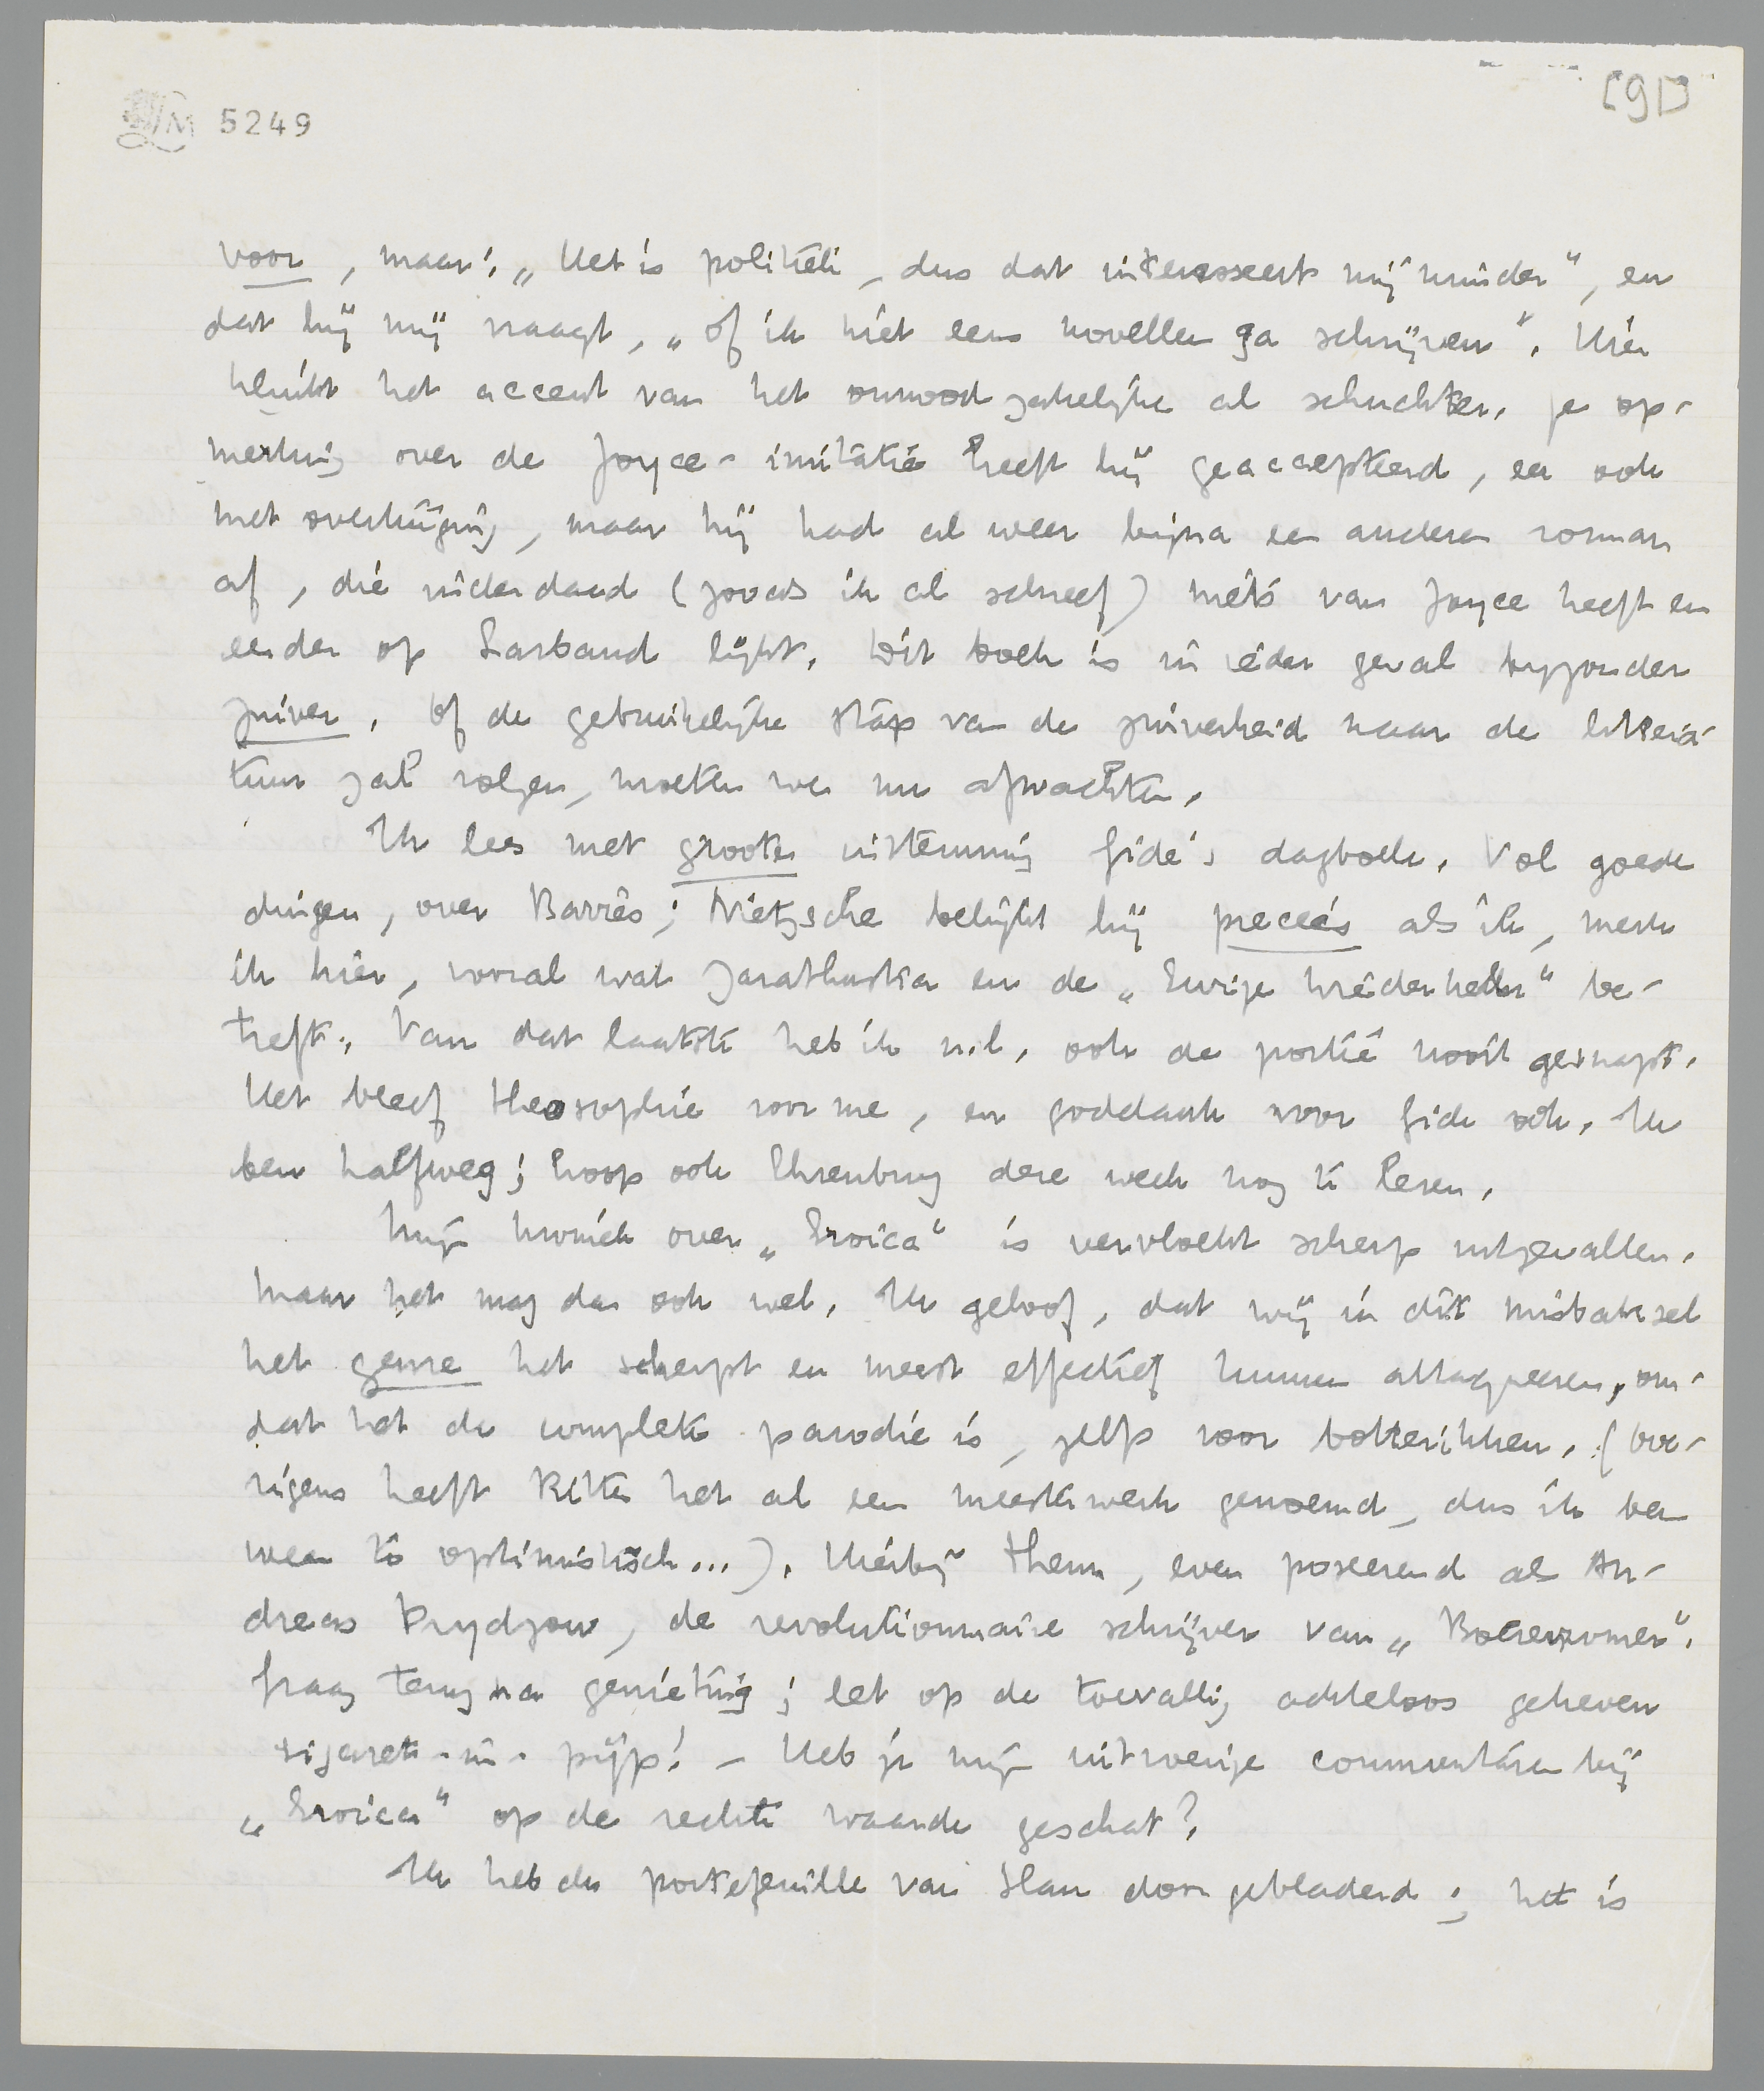 LM 5249
[91]
voor, maar: „Het is politiek, dus dat interesseert mij minder”, en
dat hij mij vraagt, „of ik niet eens novellen ga schrijven”. Hier
klinkt het accent van het onnoodzakelijke al schuchter. Je op-
merking over de Joyce-imitatie heeft hij geaccepteerd, en ook
met overtuiging, maar hij had al weer bijna een anderen roman
af, die inderdaad (zooals ik al schreef) niets van Joyce heeft en
eerder op Larbaud lijkt. Dit boek is in ieder geval byzonder
zuiver. Of de gebruikelijke stap van de zuiverheid naar de litera-
tuur zal volgen, moeten we nu afwachten.
Ik lees met groote instemming Gide's dagboek. Vol goede
dingen, over Barrès; Nietzsche belijkt hij precies als ik, merk
ik hier, vooral wat Zarathustra en de „Ewige Wiederkehr” be-
treft. Van dat laatste heb ik n.l. ook de portée nooit gesnapt.
Het bleef theosophie voor me, en goddank voor Gide ook. Ik
ben halfweg; hoop ook Ehrenburg deze week nog te lezen.
Mijn kroniek over „Eroica” is vervloekt scherp uitgevallen.
Maar het mag dan ook wel. Ik geloof, dat wij in dit misbaksel
het genre het scherpst en meest effectief kunnen attaqueeren, om-
dat het de complete parodie is, zelfs voor botteriken. (Ove-
rigens heeft Ritter het al een meesterwerk genoemd, dus ik ben
weer te optimistisch...). Hierbij Theun, even poseerend als An-
dreas Prydzow, de revolutionnaire schrijver van „Boerenzomer”.
Graag terug na genieting; let op de toevallig achteloos geheven
sigaret-in-pijp! – Heb je mijn uitwerige commentaren bij
„Eroica” op de rechte waarde geschat?
Ik heb de portefeuille van Han doorgebladerd; het is